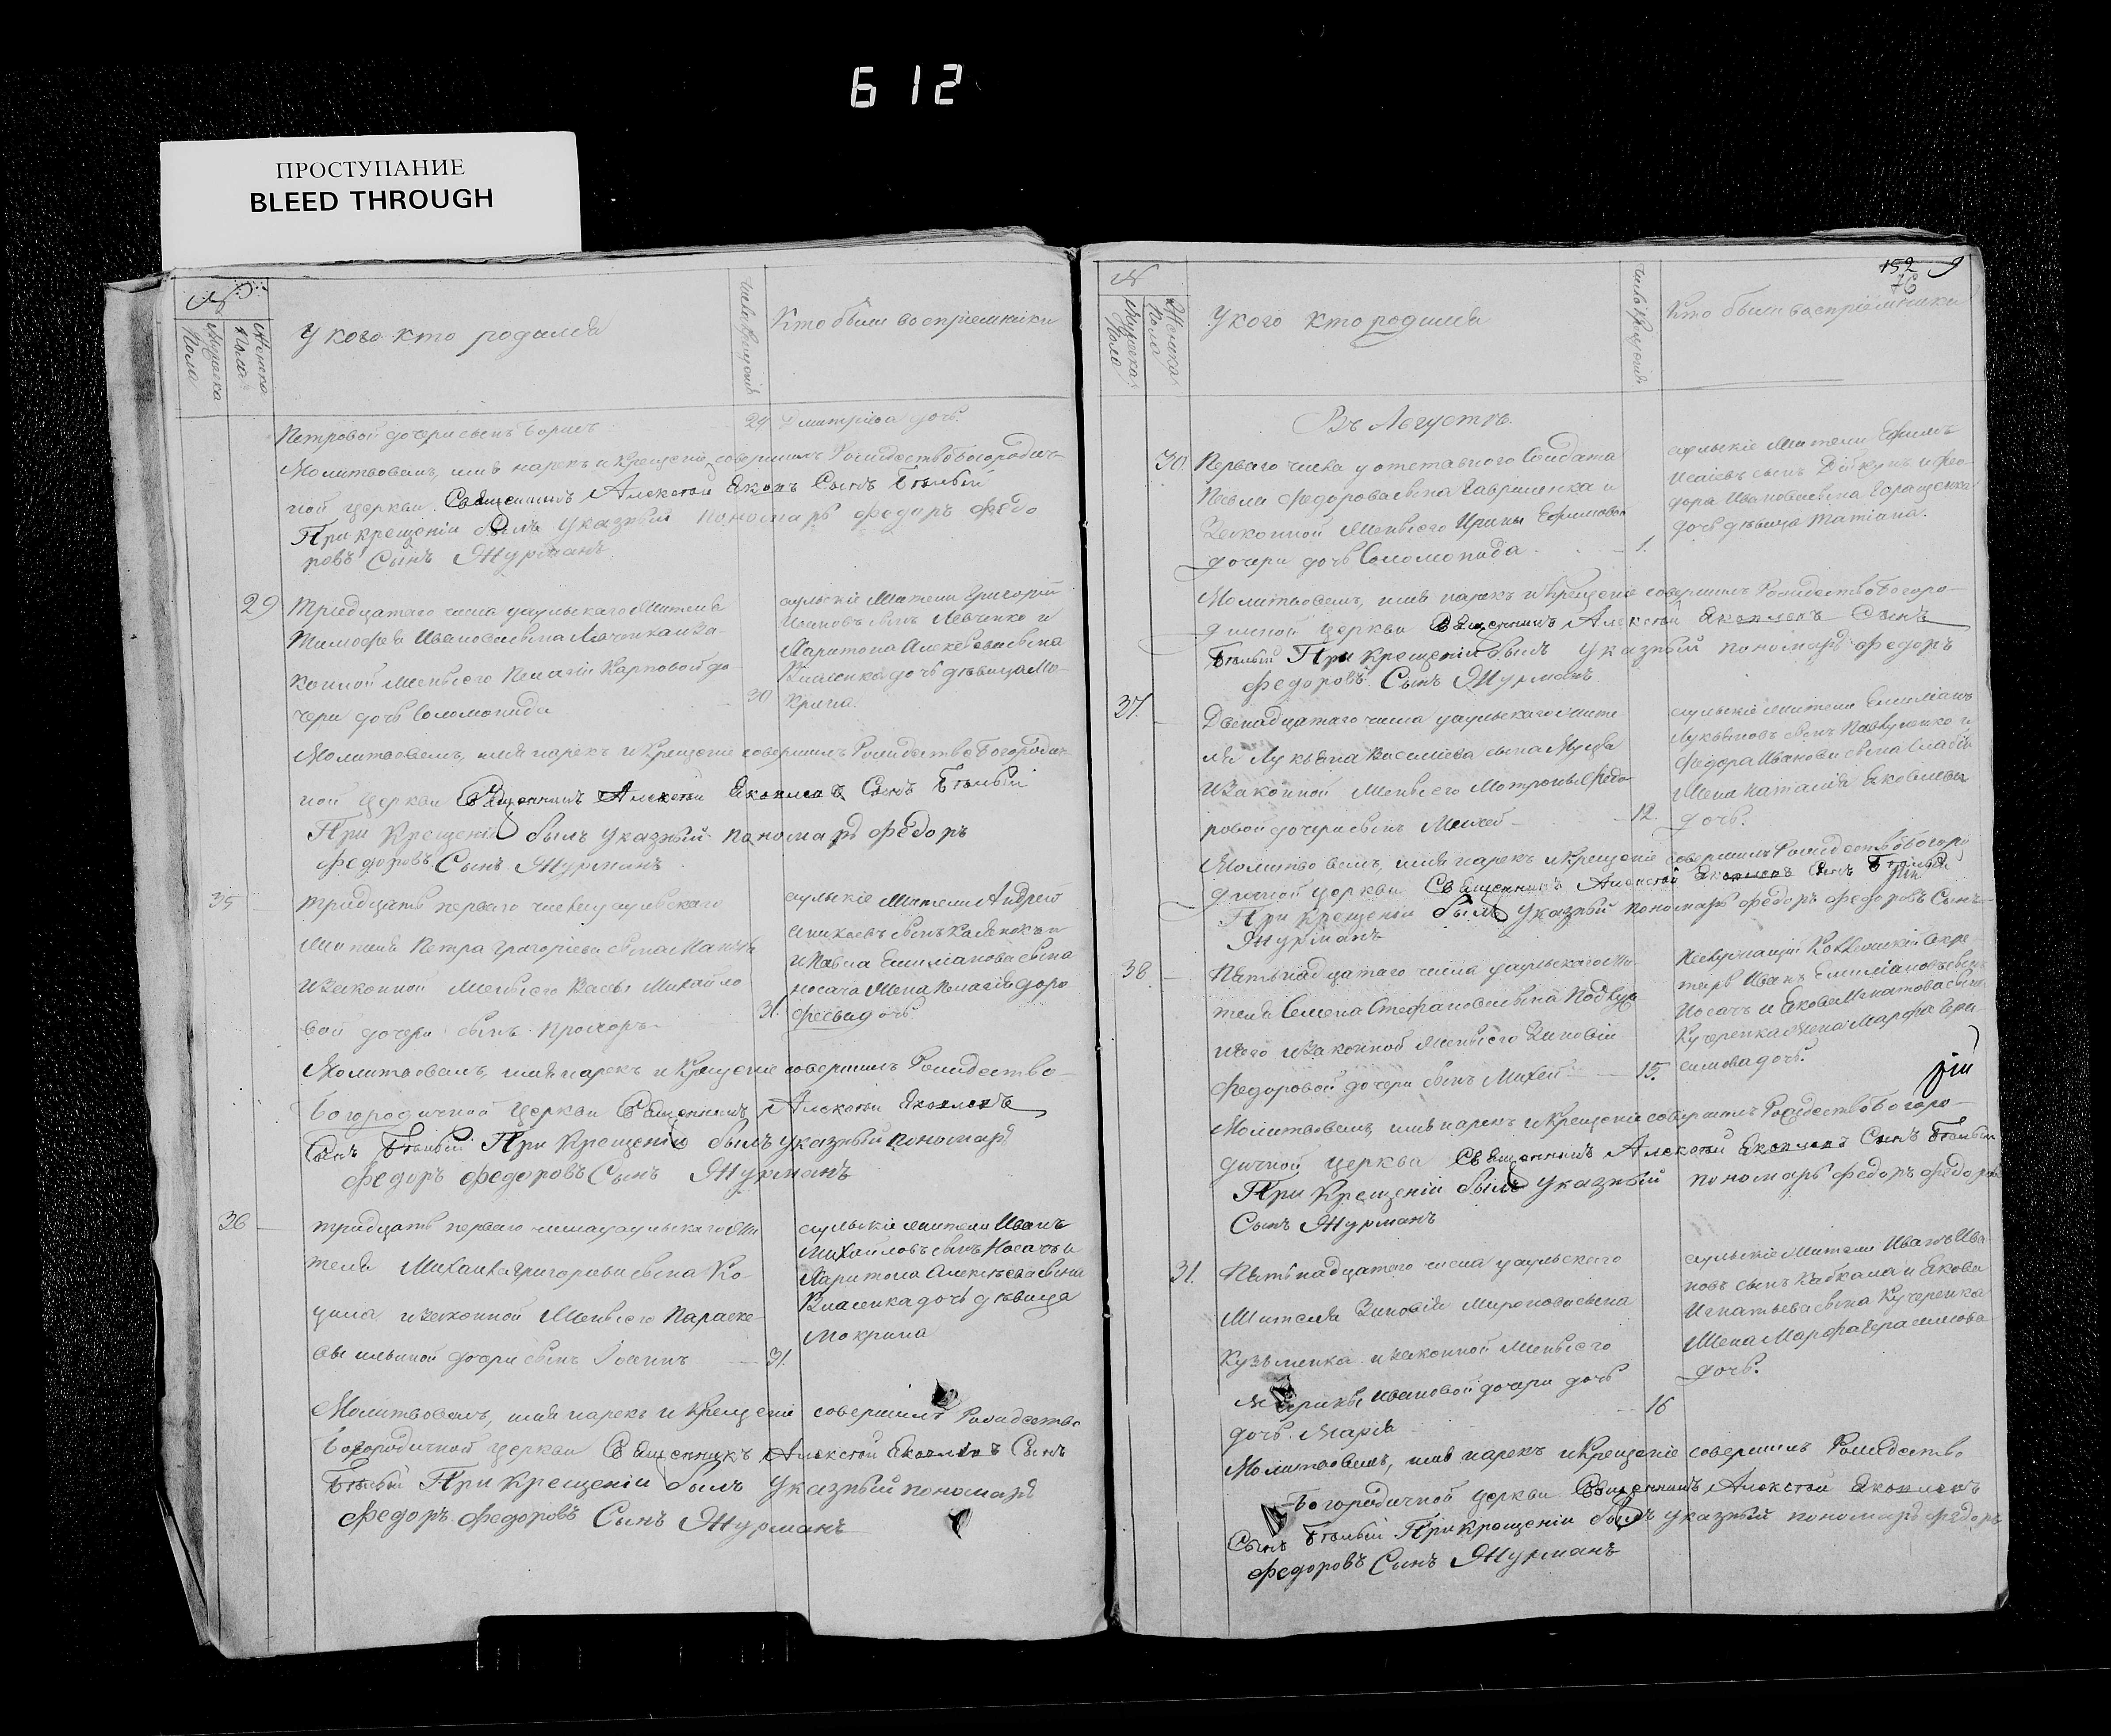 612
ПРОСТУПАНИЕ
BLEED THROUGH
№
Мужеска Пола
Женска Пола
У кого кто родился
Число Крещенія
Кто были воспріемники
Петровой дочери сынъ Борисъ
29
Дмитріева дочь.
Молитвовалъ, имя нарекъ и Крещеніе совершилъ Рождествобогородич-
ной церкви Священникъ Алексѣй Яковл Сынъ Бѣлый
При крещеніи былъ указный пономарь Федоръ Федо
ровъ Сынъ Журманъ
29
Тридцатаго числа у жителя
Тимофея Иванова сына и за-
конной жены его Пелагіи Карповой до-
чери дочь Соломонида
30
жители Григорій
Ивановъ сынъ Левченко и
Харитона Алексѣева сына
Власенка дочь дѣвица Мо-
крина.
Молитвовалъ, имя нарекъ и Крещеніе совершилъ Рождество Богородич-
ной церкви Священникъ Алексѣй Яковлевъ Сынъ Бѣлый
При Крещеніи былъ указный пономарь Федоръ
Федоровъ Сынъ Журманъ
35
тридцать перваго числа у
жителя Петра Григоріева сына
и законной жены его Вассы Михайло
вой дочери сынъ Прохоръ
31.
жители Андрей
сынъ
и Павла Емиліанова сына
Носача жена Пелагія Доро
феева дочь
Молитвовалъ, имя нарекъ и Крещеніе совершилъ Рождество
Богородичной церкви Священникъ Алексѣй Яковлевъ
Сынъ Бѣлый При Крещеніи былъ указный пономарь
Федоръ Федоровъ Сынъ Журманъ
36
тридцать перваго числа у жи
теля Михаила Григорьева сына Ко
и законной жены его Параске
вы Ильиной дочери сынъ Іоаннъ
31.
жители Иванъ
Михайловъ сынъ Носачъ и
Харитона Алексѣева сына
Власенка дочь дѣвица
Мокрина
Молитвовалъ, имя нарекъ и Крещеніе совершилъ Рождество
Богородичной церкви Священникъ Алексѣй Яковлевъ Сынъ
Бѣлый При Крещеніи былъ указный пономарь
Федоръ Федоровъ Сынъ Журманъ
152
76
№
Мужеска Пола
Женска Пола
У кого кто родился
Число Крещенія
Кто были воспріемники
Въ Августѣ.
30.
Перваго числа у отставного Солдата
Федорова сына Гавриленка и
Законной жены его Ирины Ефимовой
дочери дочь Соломонида
1.
жители Ефимъ
Исаіевъ сынъ и Фео-
дора Иванова сына Геращенка
дочь дѣвица Татіана.
Молитвовалъ, имя нарекъ и Крещеніе совершилъ Рождество Богоро-
дичной церкви Священникъ Алексѣй Яковлевъ Сынъ
Бѣлый При Крещеніи былъ указный пономарь Федоръ
Федоровъ Сынъ Журманъ
37.
Двенадцатаго числа у жите
ля Лукьяна Василіева сына
и Законной жены его Мотроны Федо-
ровой дочери сынъ Михей
12.
жители Емиліанъ
Лукьяновъ сынъ Павленко и
Федора Иванова сына
жена Наталія Яковлева
дочь.
Молитвовалъ, имя нарекъ и Крещеніе совершилъ Рождествобогоро
дичной церкви Священникъ Алексѣй Яковлевъ Сынъ Бѣлый
При крещеніи былъ указный пономарь Федоръ Федоровъ Сынъ
Журманъ
38
Пятьнадцатаго числа у жи-
теля Семена Стефанова сына
и Законной жены его Зиновіи
Федоровой дочери сынъ Михей
15.
Иванъ Емиліановъ сынъ
Носачъ и Якова Игнатова сына
Кучеренка жена Марфа Гера-
симова дочь.
Молитвовалъ, имя нарекъ и Крещеніе совершилъ Рождество Богоро-
дичной церкви Священникъ Алексѣй Яковлевъ Сынъ Бѣлый
При Крещеніи былъ указный пономарь Федоръ Федоровъ
Сынъ Журманъ
31.
Пятьнадцатаго числа у
жителя Зиновія Миронова сына
Кузьменка и законной жены его
Ивановой дочери дочь
дочь Марія
16
жители Иванъ Ива
новъ сынъ и Якова
Игнатьева сына Кучеренка
жена Марфа Герасимова
дочь.
Молитвовалъ, имя нарекъ и Крещеніе совершилъ Рождество
Богородичной церкви Священникъ Алексѣй Яковлевъ
Сынъ Бѣлый При крещеніи былъ указный пономарь Федоръ
Федоровъ Сынъ Журманъ